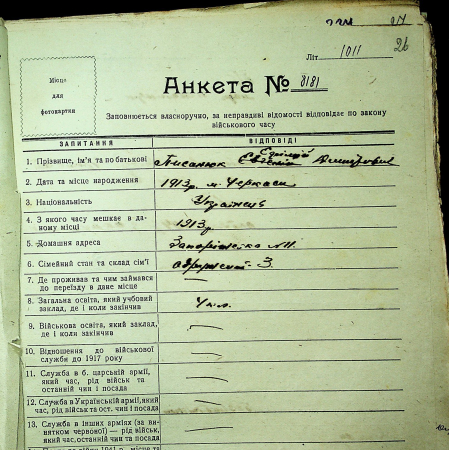 Літ 1011 26
Місце
для
фотокартки
Анкета № 8181
Заповнюється власноручно, за неправдиві відомості відповідає по закону
військового часу
ЗАПИТАННЯ ВІДПОВІДІ
1. Прізвище, ім'я та по батькові Писанюк Євгеній Дмитрович
2. Дата та місце народження 1913р. м. Черкаси
3. Національність Українець
4. З якого часу мешкає в да-
ному місці 1913р
5. Домашня адреса
6. Сімейний стан та склад сім'ї одружений 3.
7. Де проживав та чим займався
до переїзду в дане місце —
8. Загальна освіта, який учбовий
заклад, де і коли закінчив 4 кл.
9. Військова освіта, який заклад,
де і коли закінчив —
10. Відношення до військової
служби до 1917 року —
11. Служба в б. царській армії,
який час, рід військ та
останній чин і посада —
12. Служба в Українській армії, який
час, рід військ та ост. чин і посада —
13. Служба в інших арміях (за ви-
нятком червоної) — рід військ,
який час, останній чин та посада —